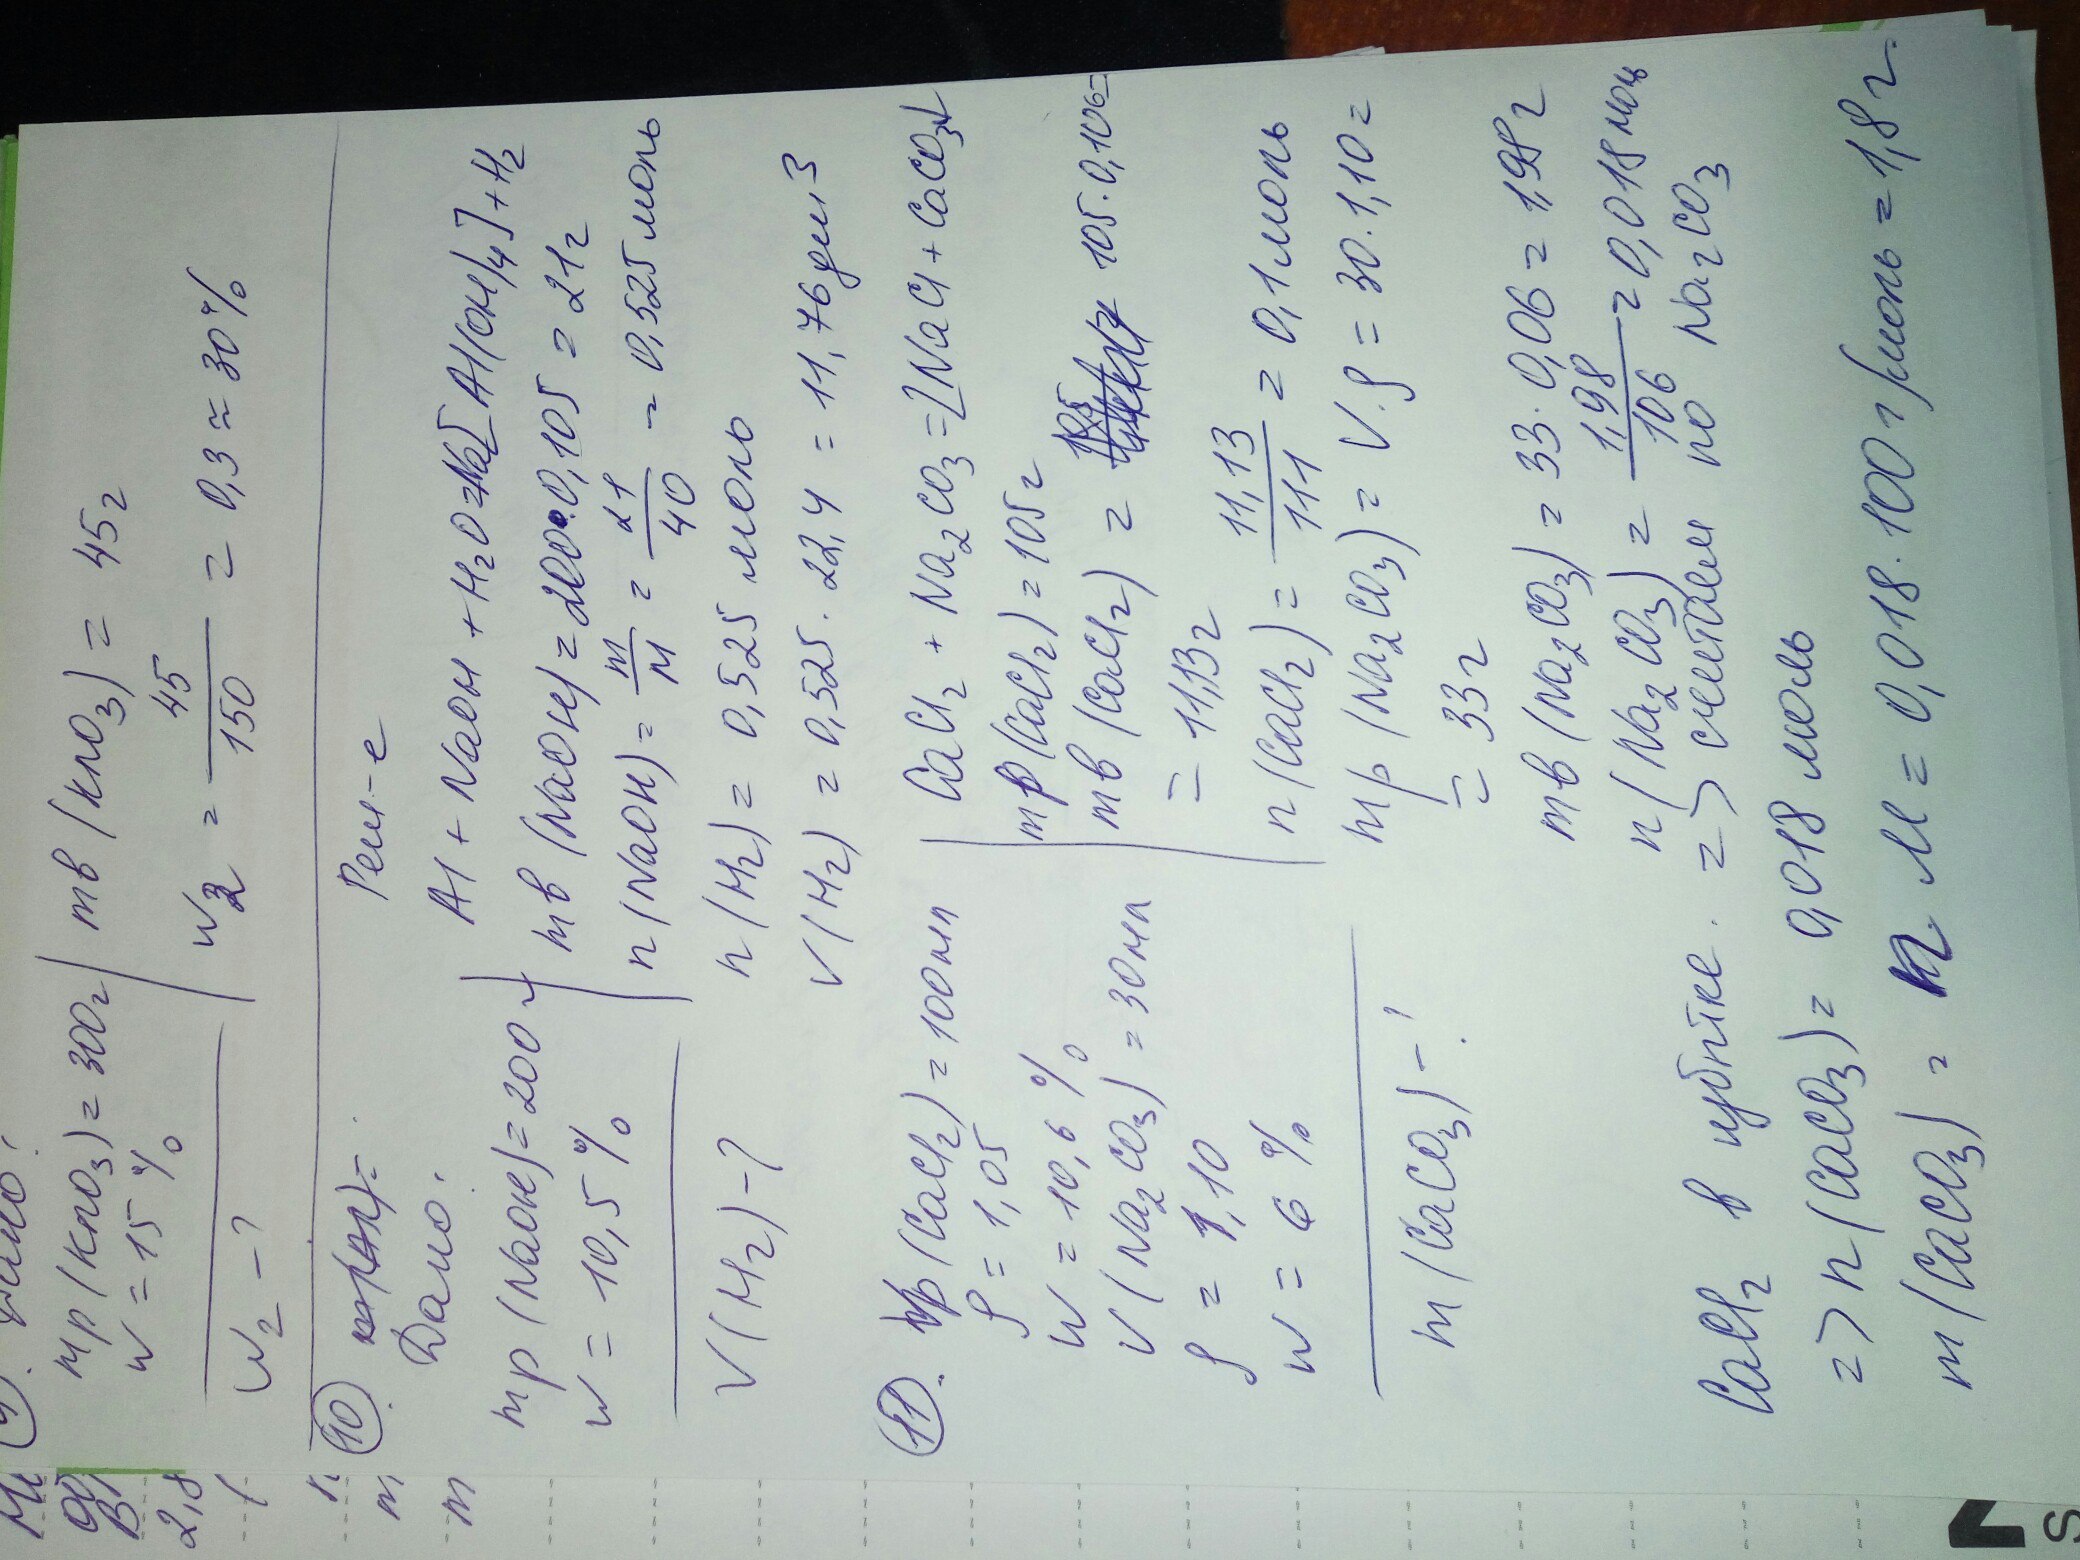 Дано:
mр (KNO3) = 300г
w = 15 %
w2 - ?
mв (KNO3) = 45г
w2 = 45/150 = 0,3 = 30%
10.
Дано:
Реш-е
mр (NaOH) = 200 г
w = 10,5 %
V(H2) - ?
Al + NaOH + H2O = Na[Al(OH)4] + H2
mв (NaOH) = 200 · 0,105 = 21г
n (NaOH) = m/M = 21/40 = 0,525 моль
n (H2) = 0,525 моль
V (H2) = 0,525 · 22,4 = 11,76 дм3
11.
р (CaCl2) = 100мл
ρ = 1,05
w = 10,6 %
V (Na2CO3) = 30мл
ρ = 1,10
w = 6 %
m (CaCO3) - ?
CaCl2 + Na2CO3 = 2NaCl + CaCO3↓
mр (CaCl2) = 105г
mв (CaCl2) = 105 · 0,106 =
= 11,13г
n (CaCl2) = 11,13/111 = 0,1 моль
mр (Na2CO3) = V · ρ = 30 · 1,10 =
= 33г
mв (Na2CO3) = 33 · 0,06 = 1,98г
n (Na2CO3) = 1,98/106 = 0,018 моль
CaCl2 в избытке. => считаем по Na2CO3
=> n (CaCO3) = 0,018 моль
m (CaCO3) = n M = 0,018 · 100 г/моль = 1,8 г.
2,8
m
m
S